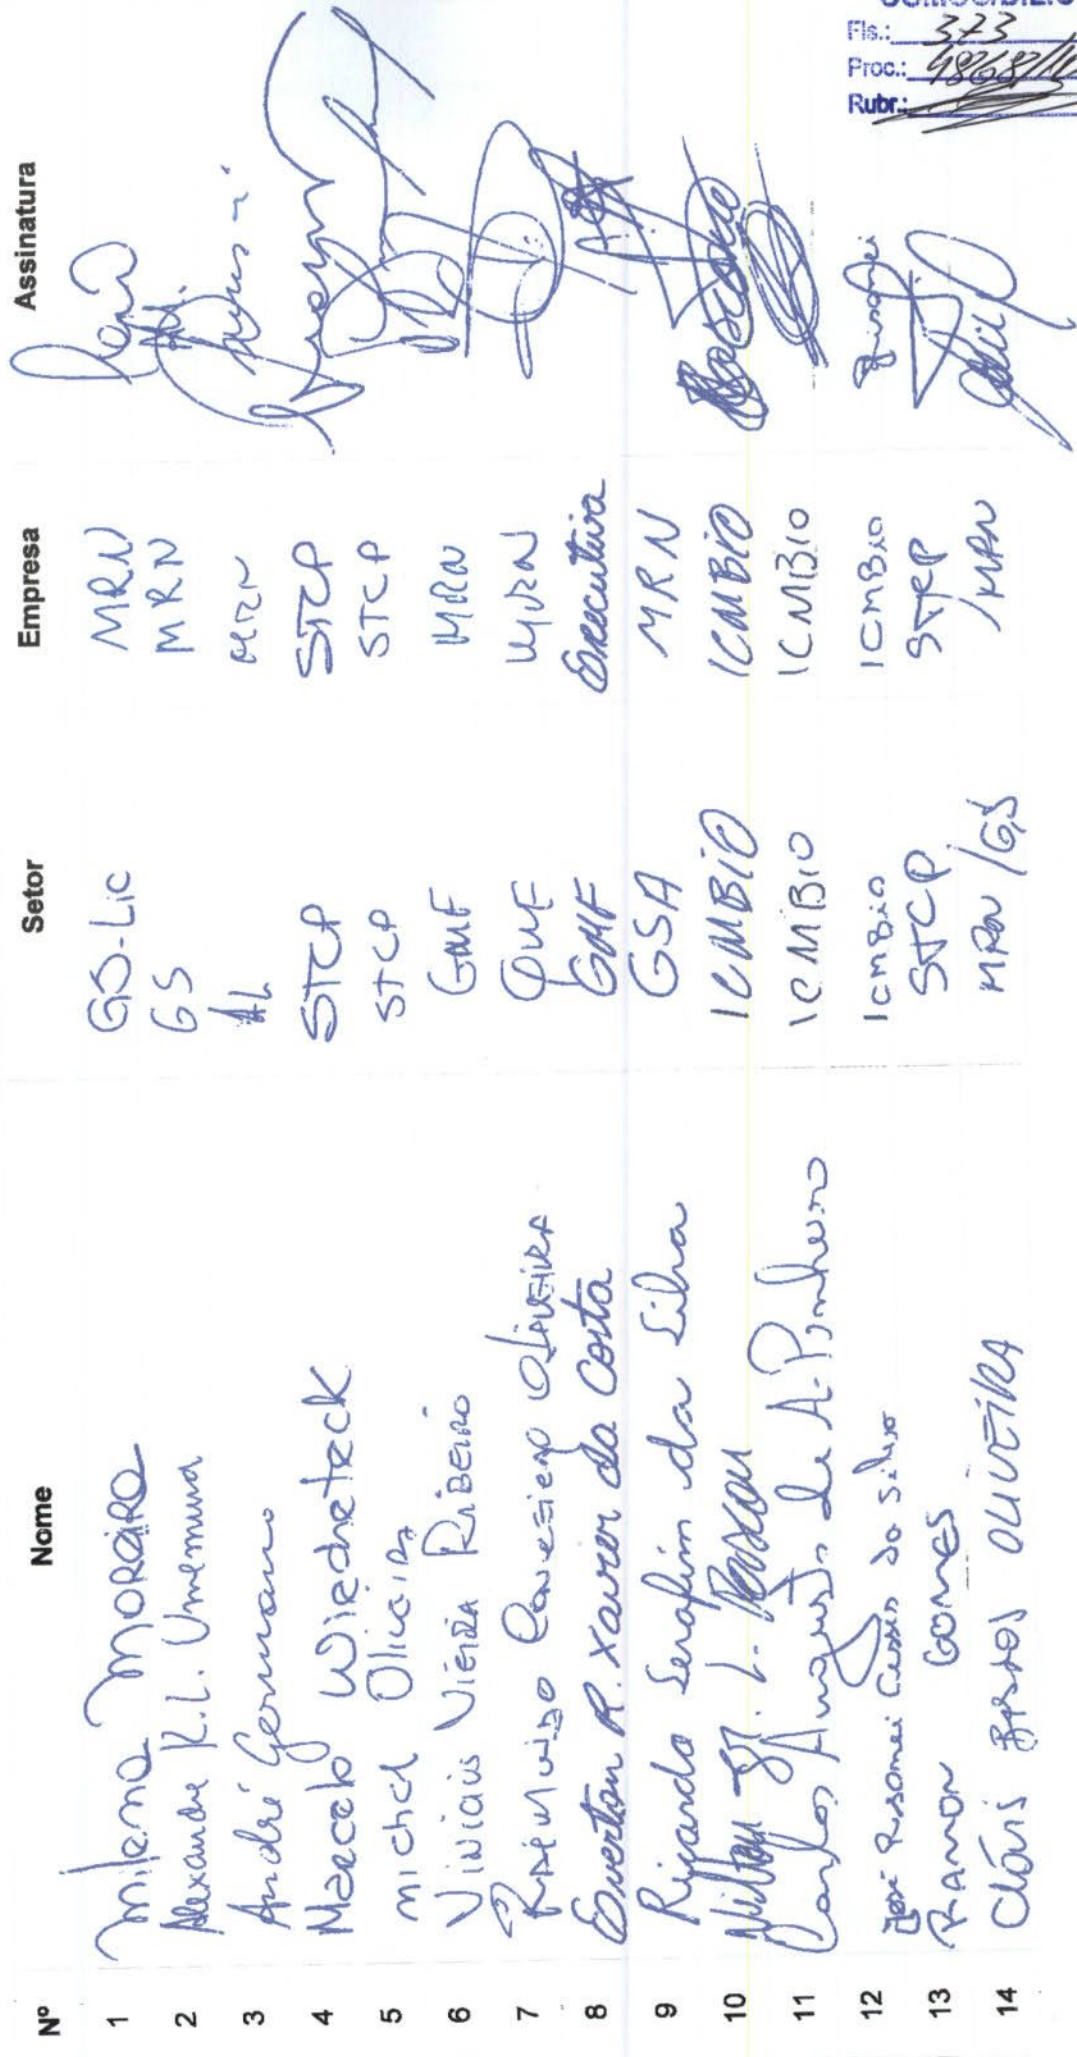 Nº Nome Setor Empresa Assinatura
1 Milena Moreira GS-Lic MRN
2 Alexandre K.L. Umemura GS MRN
3 André Germano AL MRN
4 Marcelo Wiecheteck STCP STCP
5 Michel Oliveira STCP STCP
6 Vinicius Vieira Ribeiro GMF MRN
7 Raimundo Oliveira MRN
8 Everton R. Xavier da Costa GMF Executiva
9 Ricardo Serafim da Silva GSA MRN
10 Nilton ICMBIO ICMBIO
11 Carlos Augusto de A. Pinheiro ICMBIO ICMBIO
12 José Risonei da Silva ICMBio ICMBio Risonei
13 Ramon Gomes STCP STCP
14 Clóvis Bastos OLIVEIRA MRN/GS /MRN
Fls.: 373
Proc.:
Rubr.: